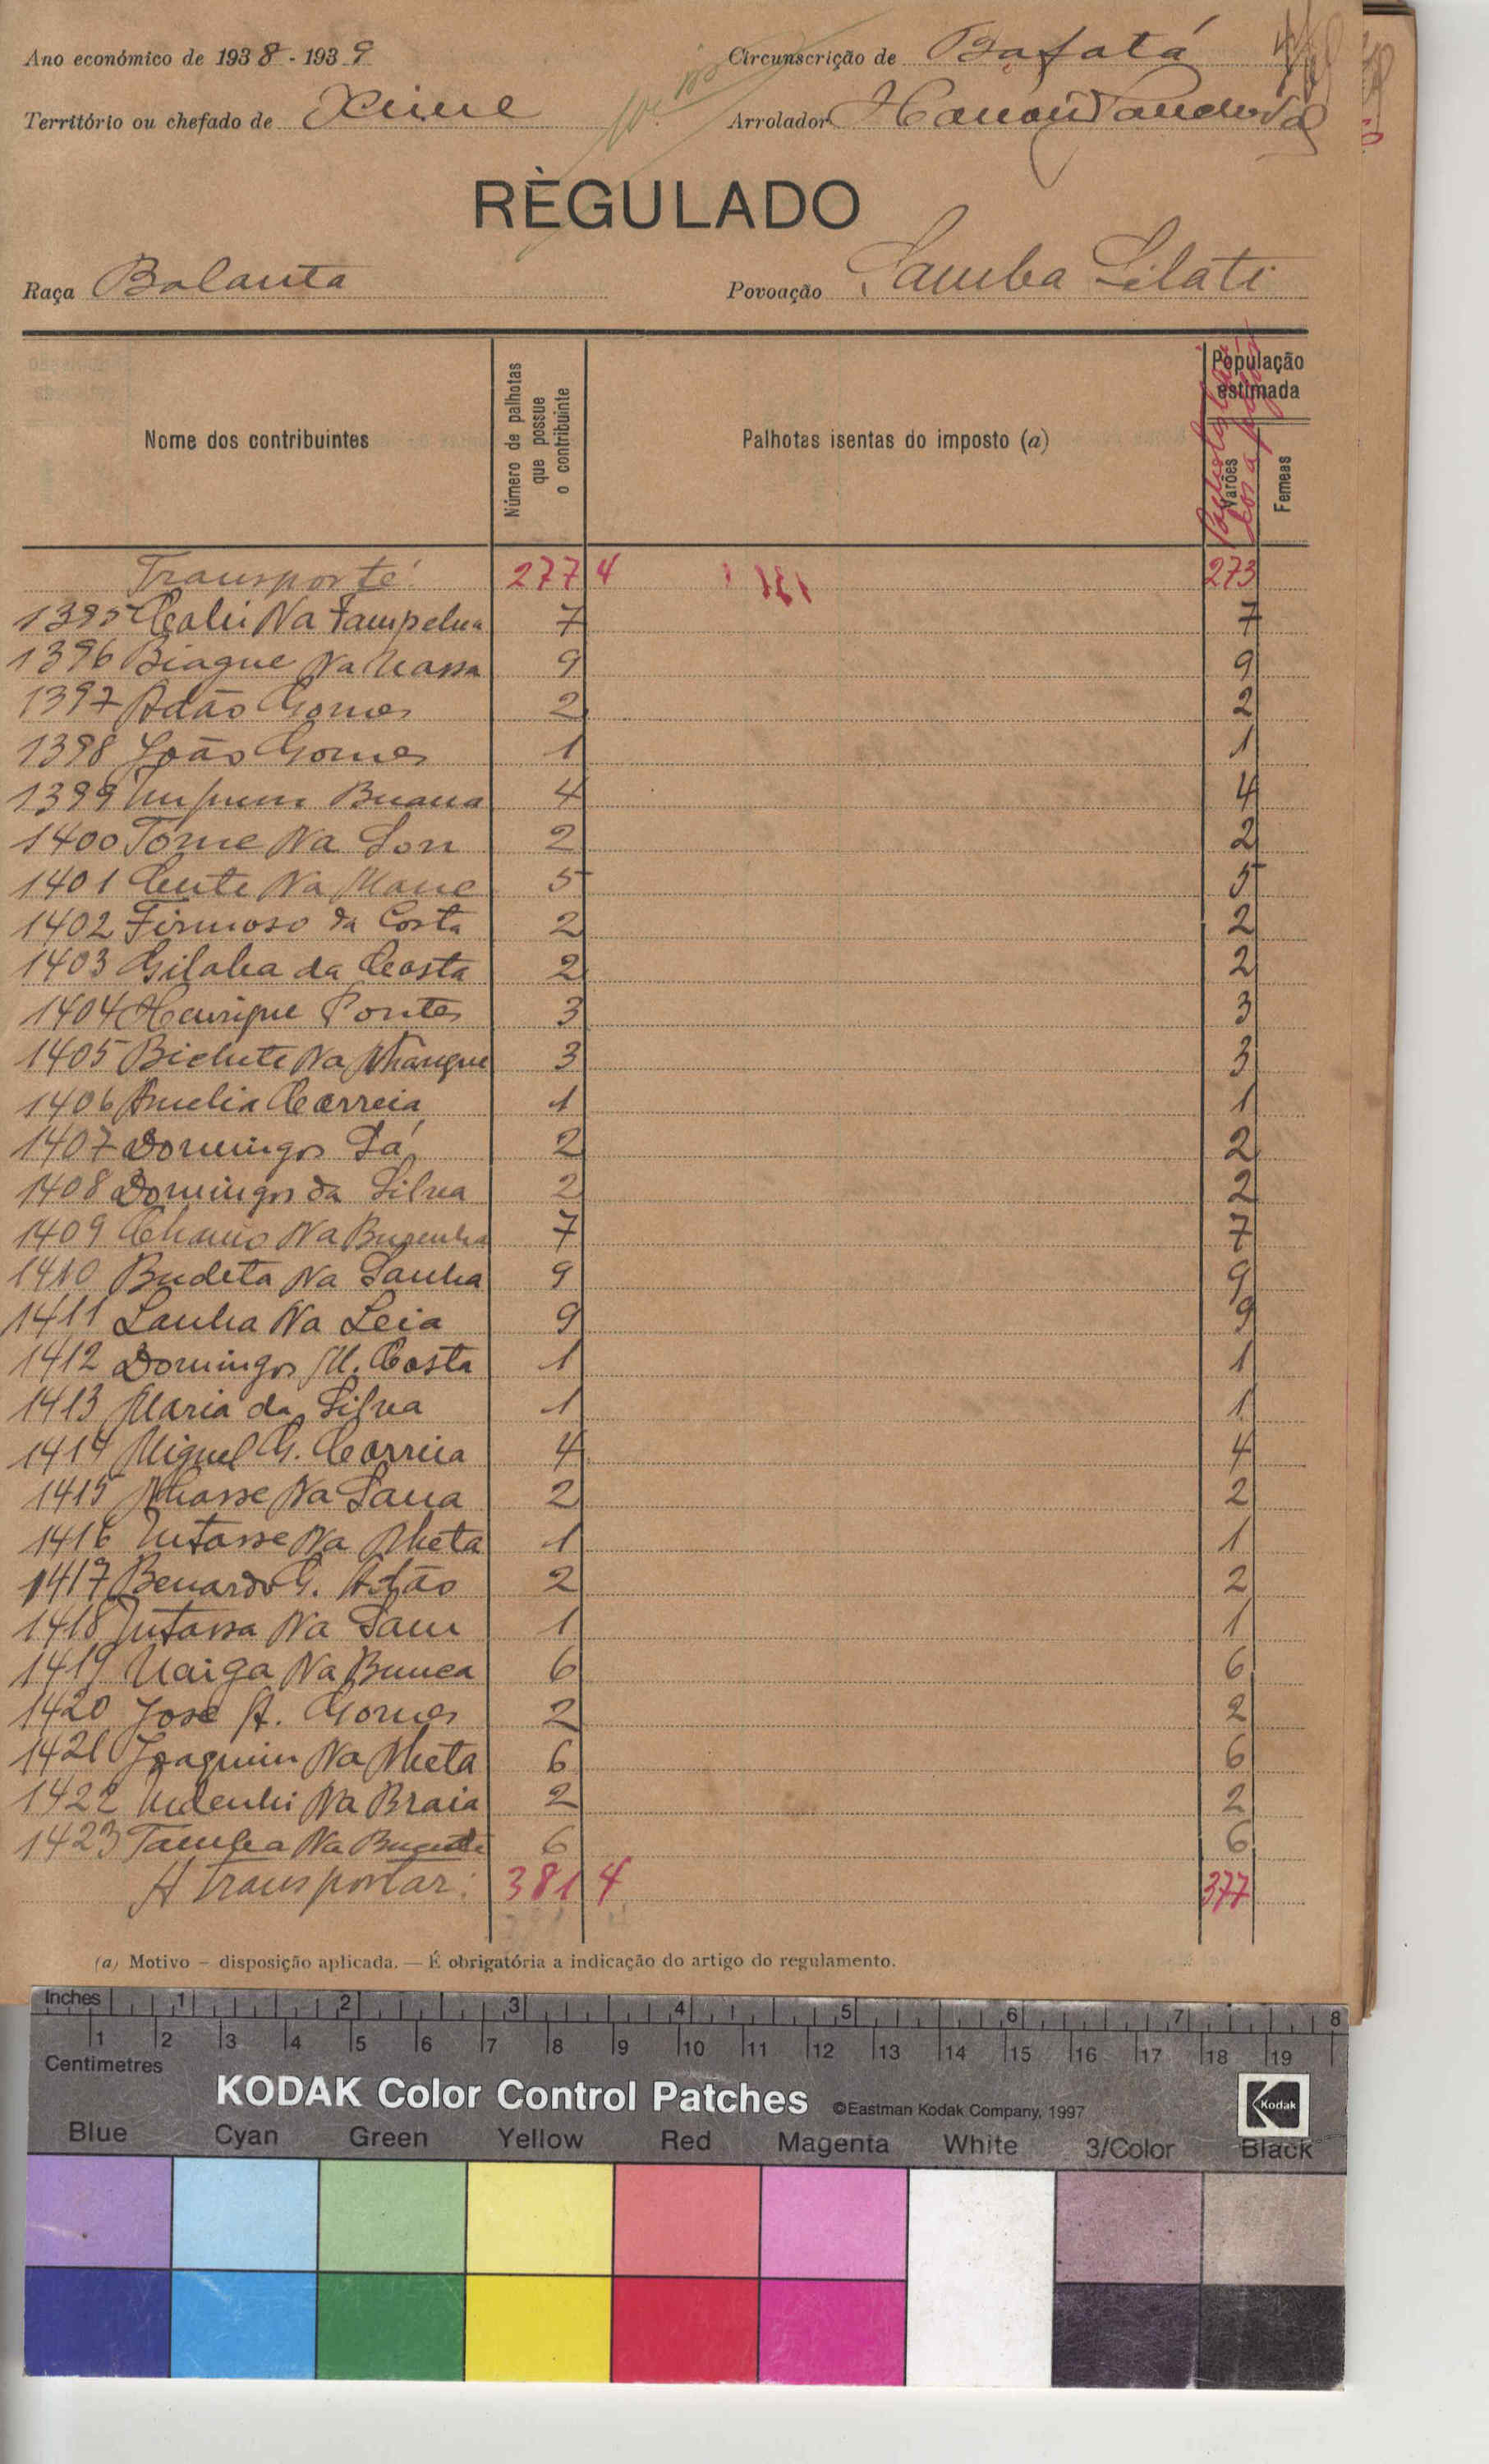 Ano económico de 1938-1939
Circunscrição de Bafatá
Território ou chefado de Xime
Arrolador
RÈGULADO
Raça Balanta
Povoação Samba Silati
Nome dos contribuintes
Número de palhotas que possue o contribuinte
Palhotas isentas do imposto (a)
População estimada
Varões
Femeas
Transporte: 277 4 273
1395 Na 7 7
1396 Biague Na 9 9
1397 Adão Gomes 2 2
1398 João Gomes 1 1
1399 Buana 4 4
1400 Tome Na Son 2 2
1401 Na Mane 5 5
1402 Firmoso da Costa 2 2
1403 da Costa 2 2
1404 Henrique Pontes 3 3
1405 Na 3 3
1406 Amelia Correia 1 1
1407 Domingos Sá 2 2
1408 Domingos da Silva 2 2
1409 Na 7 7
1410 Budeta Na Sanha 9 9
1411 Sanha Na Seia 9 9
1412 Domingos M. Costa 1 1
1413 Maria da Silva 1 1
1414 Miguel G. Correia 4 4
1415 Na 2 2
1416 Na Nheta 1 1
1417 Benardo G. Adão 2 2
1418 Na 1 1
1419 Na 6 6
1420 José A. Gomes 2 2
1421 Joaquim Na Nheta 6 6
1422 Na Braia 2 2
1423 Na 6 6
A Transportar: 381 4 377
(a) Motivo — disposição aplicada. — É obrigatória a indicação do artigo do regulamento.
Inches 1 2 3 4 5 6 7 8
1 2 3 4 5 6 7 8 9 10 11 12 13 14 15 16 17 18 19
Centimetres
KODAK Color Control Patches ©Eastman Kodak Company, 1997 Kodak
Blue Cyan Green Yellow Red Magenta White 3/Color Black